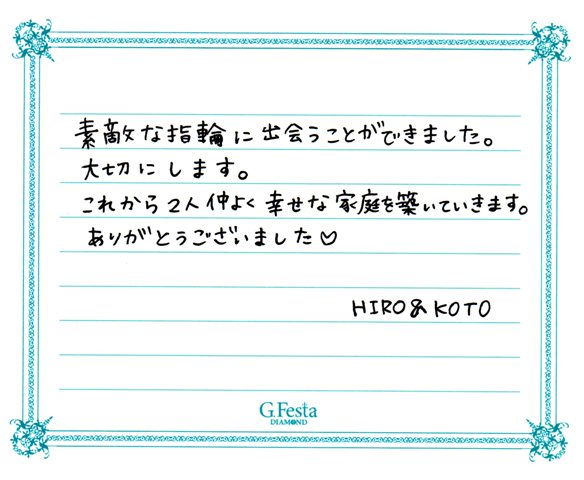 素敵な指輪に出会うことができました。
大切にします。
これから2人仲よく幸せな家庭を築いていきます。
ありがとうございました♡
HIRO&KOTO
G.Festa
DIAMOND